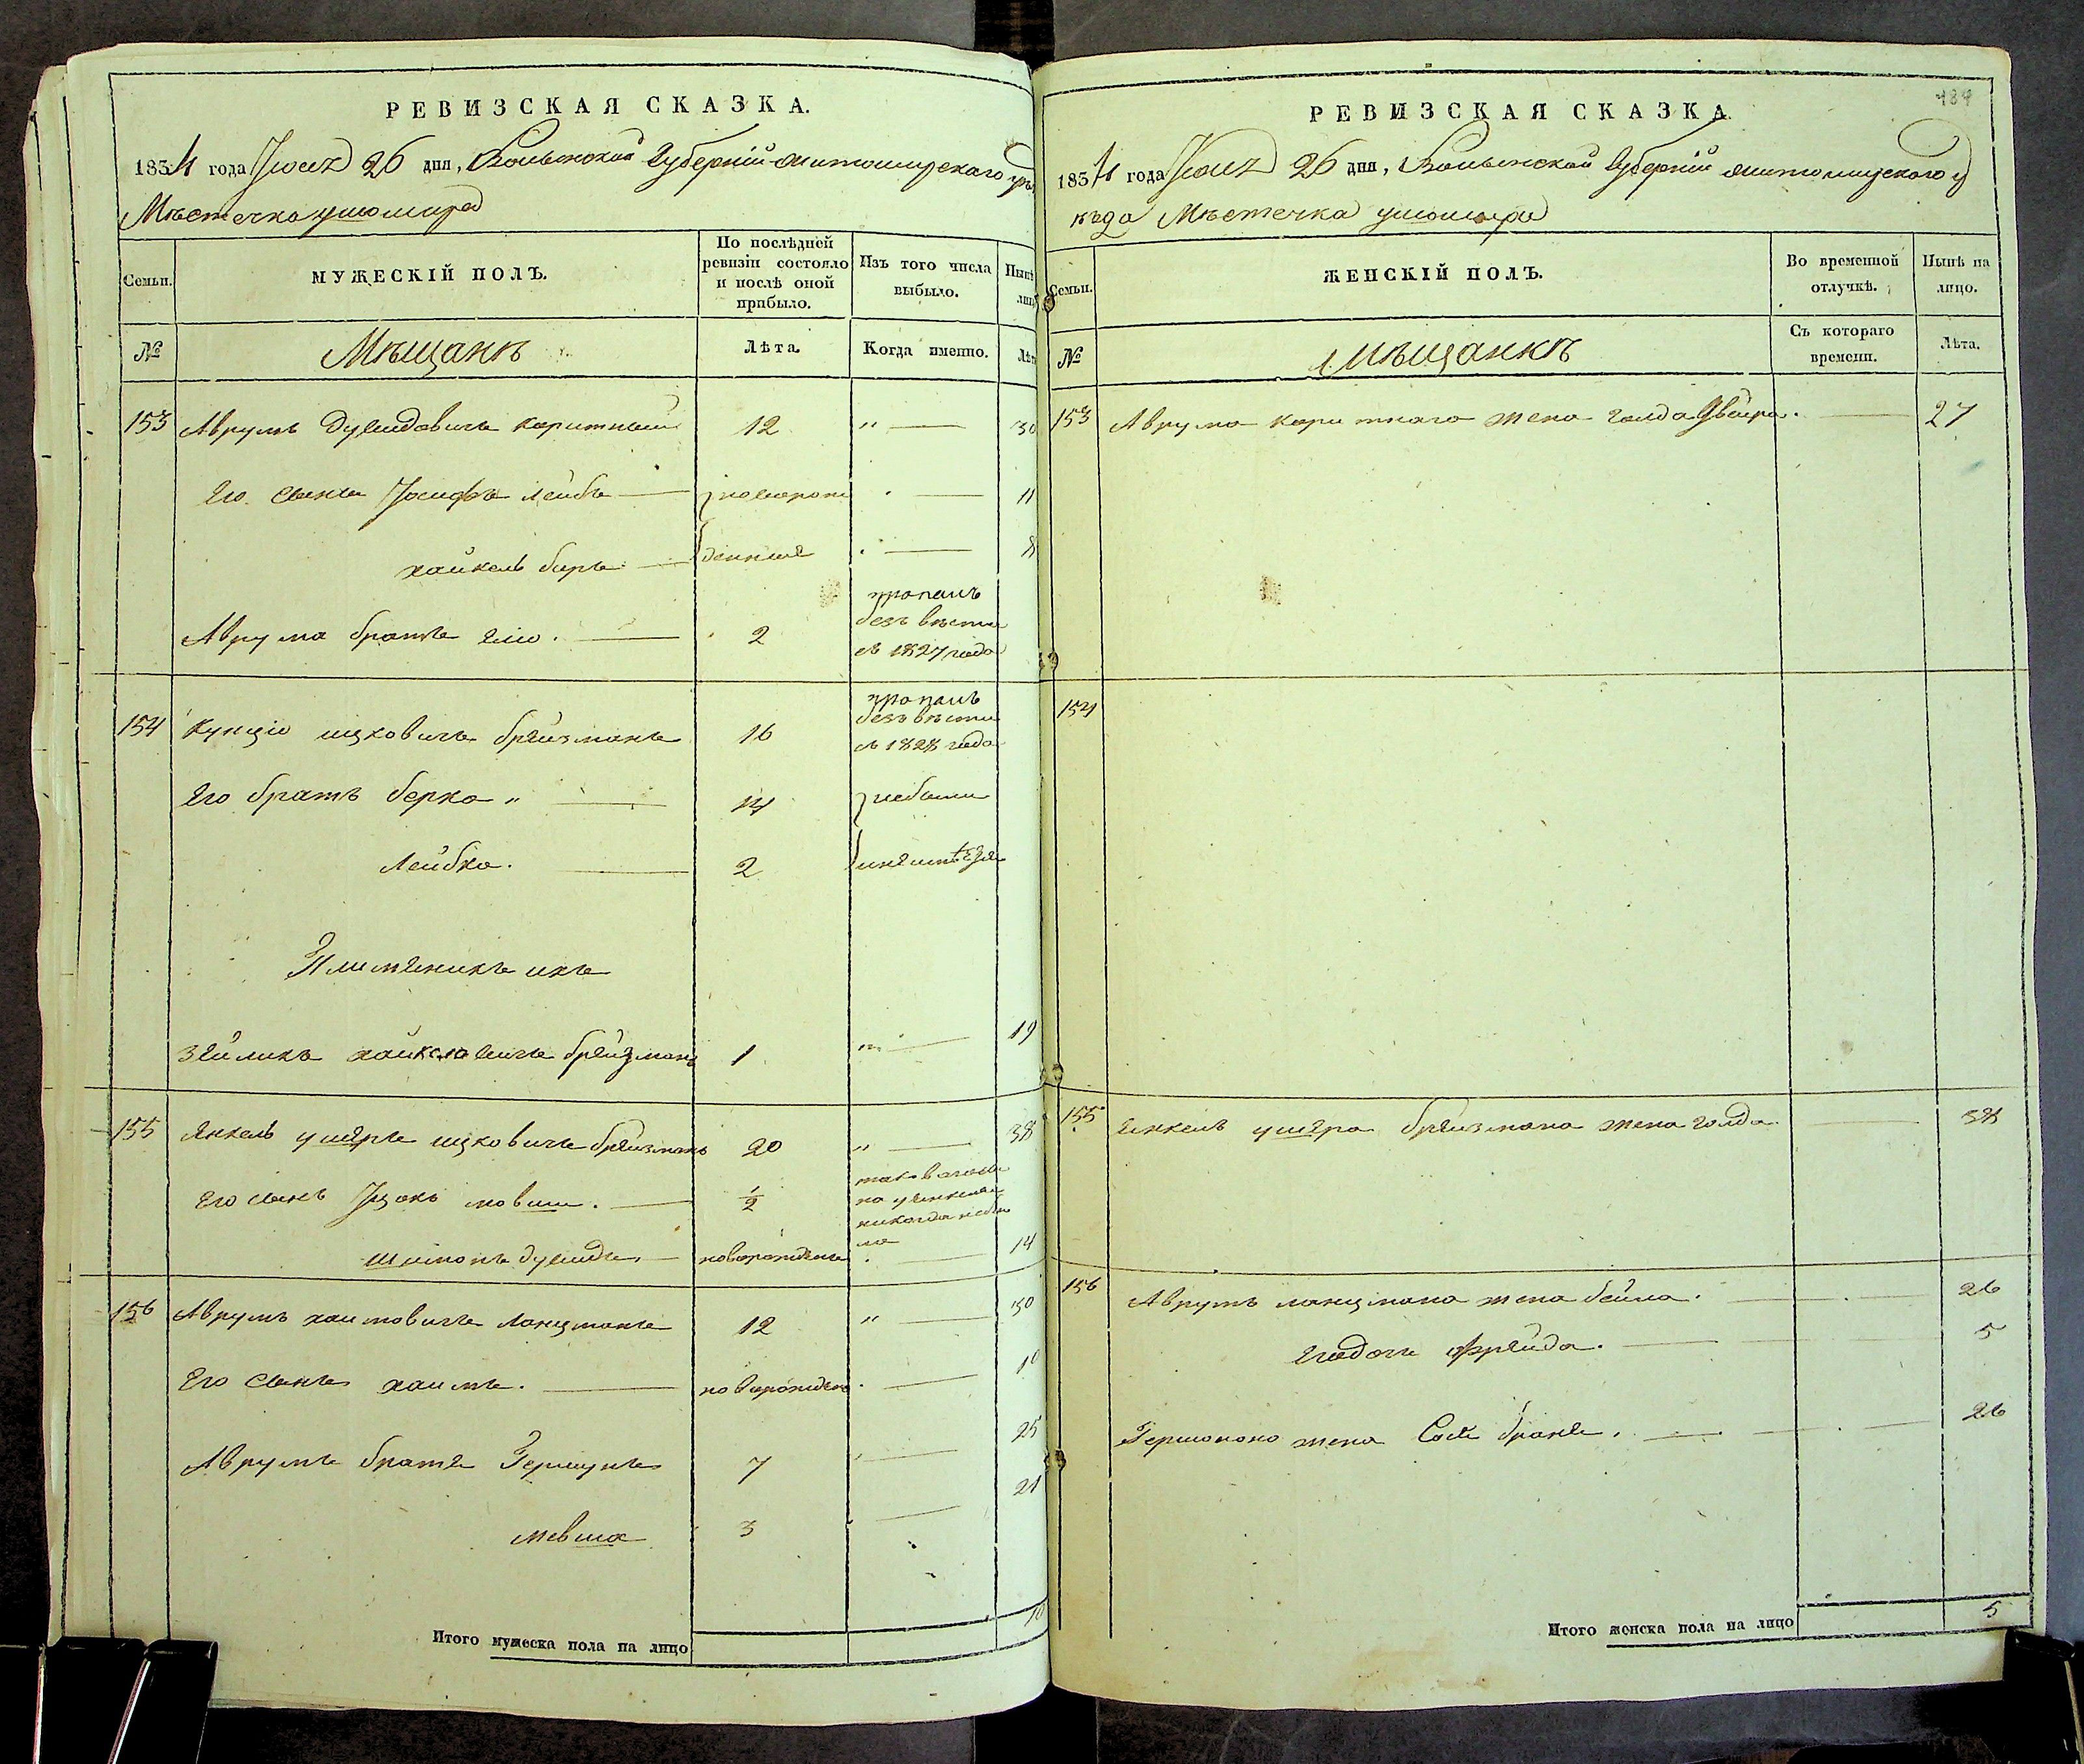 РЕВИЗСКАЯ СКАЗКА.
1834 года Июля 26 дня, Волынской Губерніи Житомирскаго
Мѣстечка Ушомира
Семьи.
МУЖЕСКІЙ ПОЛЪ.
По послѣдней ревизіи состояло и послѣ оной прибыло.
Изъ того числа выбыло.
№
Мѣщанъ
Лѣта.
Когда именно.
153 Аврумъ Дувидовичъ Коритный 12 " — 30
Его сынъ Іосифъ Лейбъ — новорож . — 11
хайкель беръ — денные . — 8
Аврума братъ Елю. — 2 пропалъ безъ вѣсти съ 1827 года
154 Кунцю ицковичъ брейзманъ 16 пропалъ безъ вѣсти съ 1828 года
Его братъ берко " — 14
Лейбко. — 2
Племяникъ ихъ
Зейликъ хайкелевичъ брейзманъ 1 " — 19
155 Янкель ушеръ ицковичъ брейзманъ 20 " — 38
Его сынъ Іцокъ мовша. — ½ никогда небы ло
шимонъ дувидъ. — новорожденъ . — 14
156 Аврумъ хаимовичъ Ланцманъ 12 " — 30
Его сынъ хаимъ. — новорожден . — 10
Аврумъ братъ Гершунъ 7 — 25
мовша 3 — 21
Итого мужеска пола на лицо 10
484
РЕВИЗСКАЯ СКАЗКА
1834 года Июля 26 дня, Волынской Губерніи Житомирскаго у
ѣзда Мѣстечка Ушомира
Семьи.
ЖЕНСКІЙ ПОЛЪ.
Во временной отлучкѣ.
Нынѣ на лицо.
№
Мѣщанкѣ
Съ котораго времени.
Лѣта.
153 Аврума Коритнаго жена Голда Двойра. — 27
154
155 Янкель ушера брейзмана жена голда — 38
156 Аврумъ ланцмана жена бейла. — 26
Его дочь Фрейда. — 5
Гершоно жена Сося браня. — 26
Итого женска пола на лицо 5